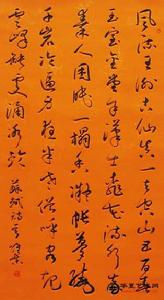 風流王謝古仙真一去空山五百春
玉室金堂餘漢士桃花流水失
秦人困眠一榻香凝帳夢繞
千岩冷逼身夜半老僧呼客起
雲峰缺處涌冰輪 蘇軾詩